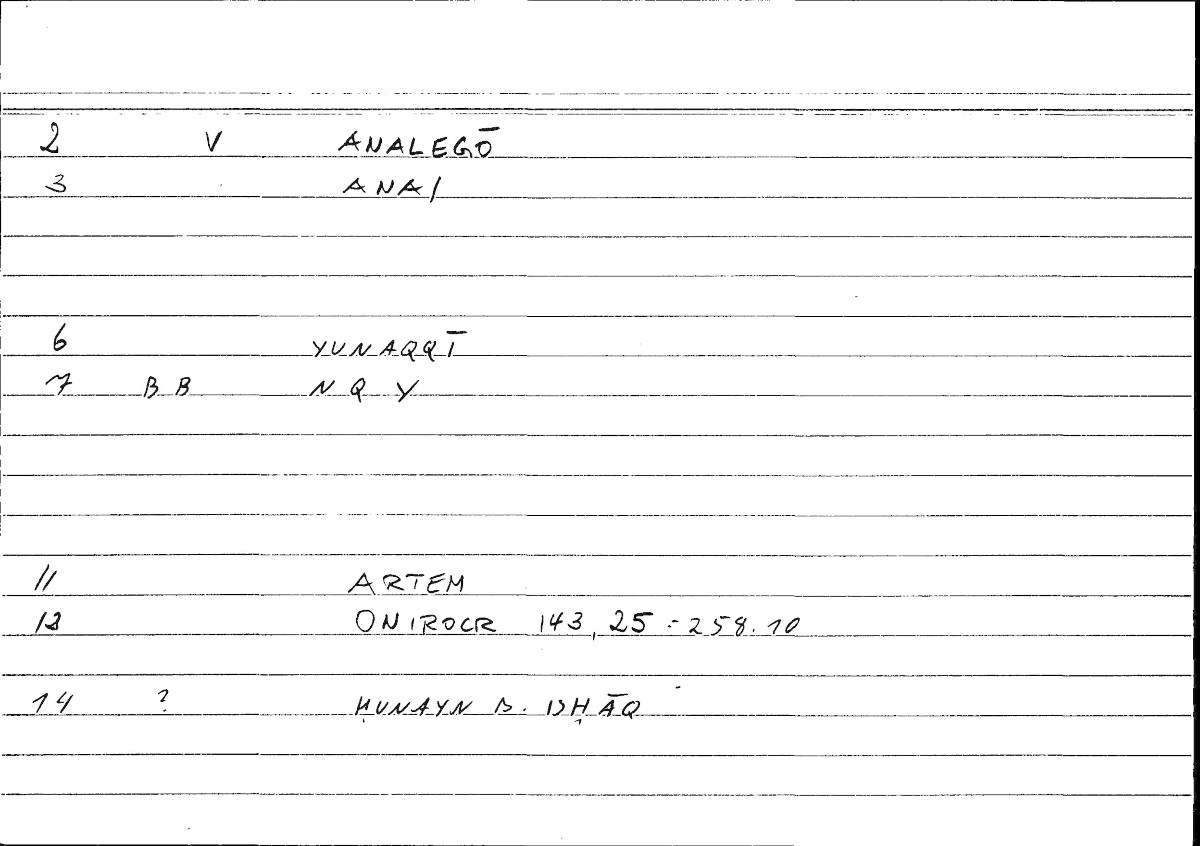 2 V ANALEGŌ
3 ANA/
6 YUNAQQĪ
7 BB NQY
11 ARTEM
ONIROCR 143,25 = 258.10
14 ? ḤUNAYN B. ISḤĀQ